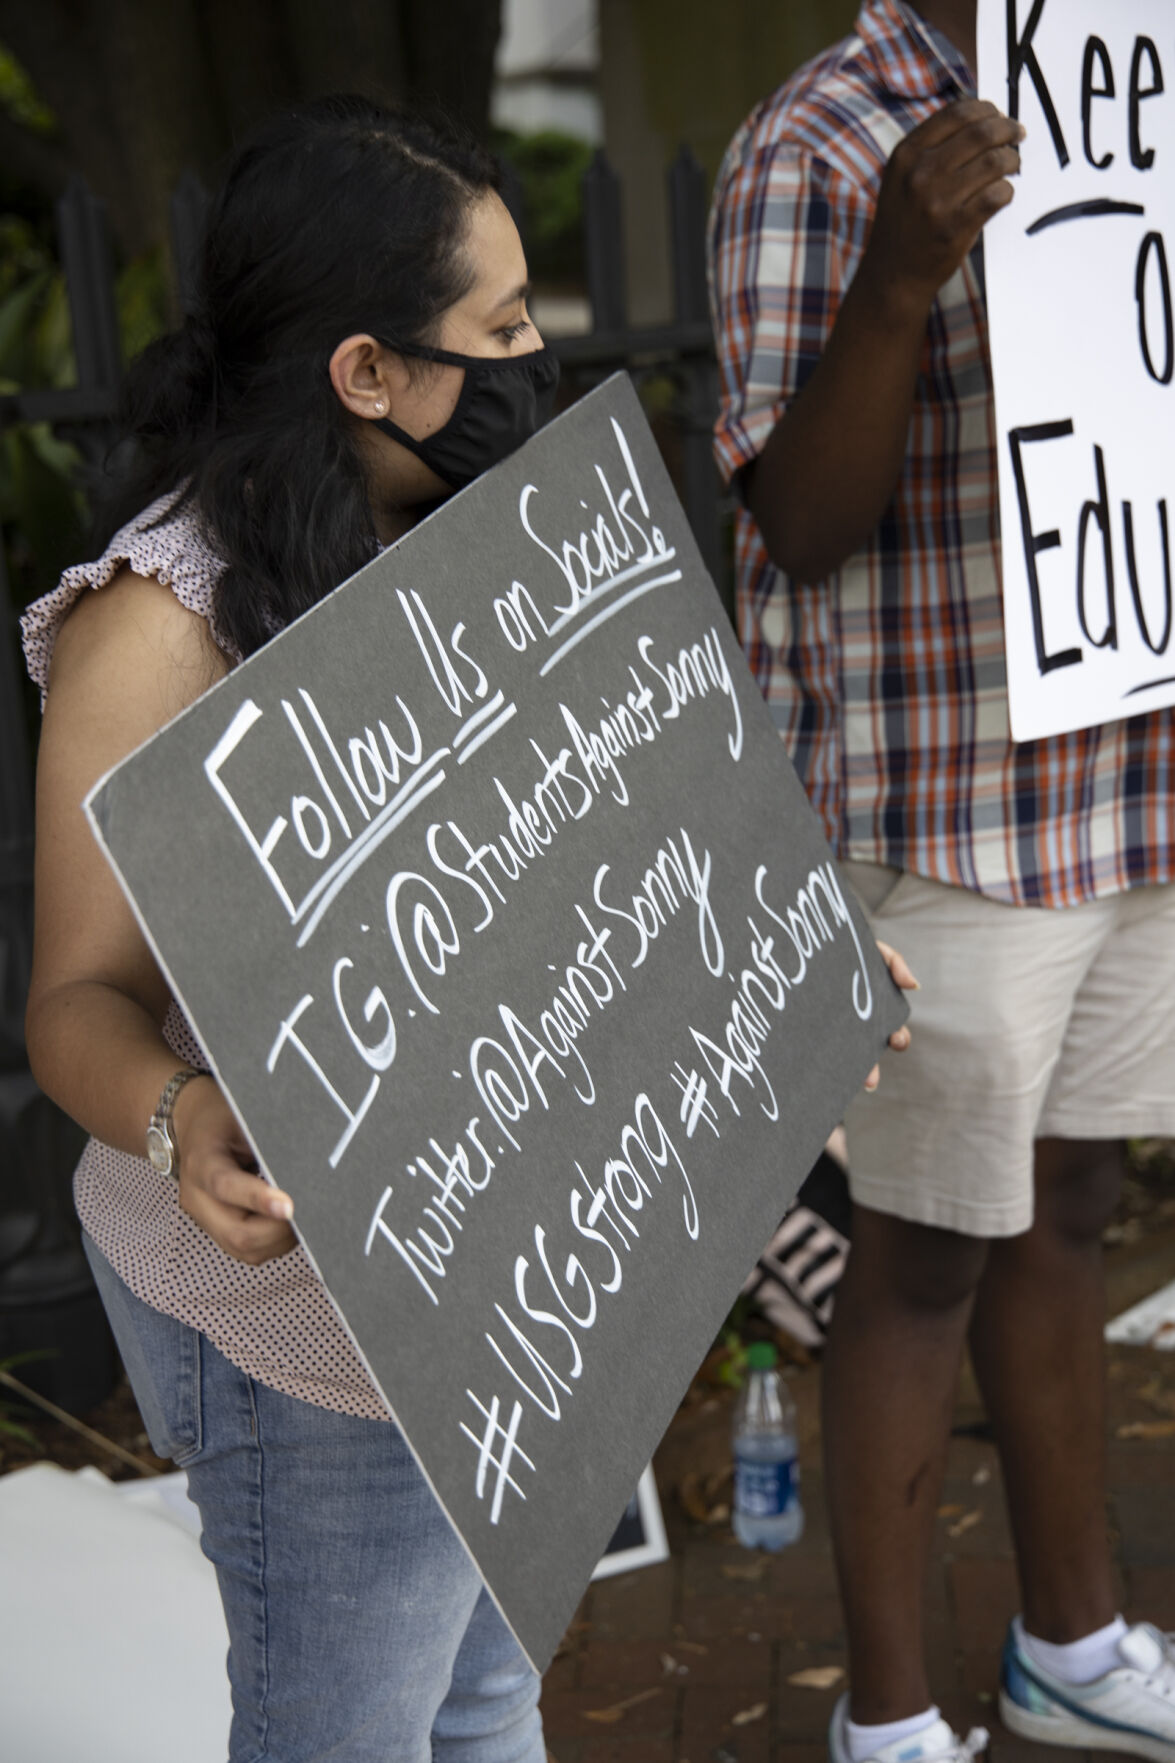 Follow Us on Socials!
IG:@StudentsAgainstSonny
Twitter:@AgainstSonny
#USGStrong #AgainstSonny
Kee
o
Edu